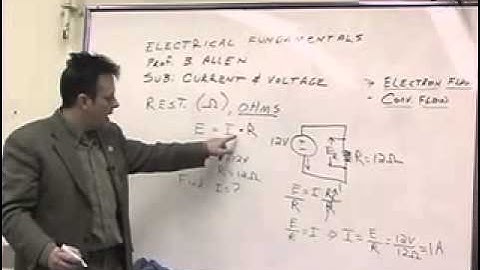 ELECTRICAL FUNDAMENTALS
PROF. B ALLEN
SUB: CURRENT & VOLTAGE
→ ELECTRON FLOW
- CONV. FLOW
REST. (Ω), OHMS
E = I • R
12V
E R
R = 12Ω
12V
R = 12Ω
Find I = ?
E/R = I R/R
E/R = I ⇒ I = E/R = 12V/12Ω = 1A